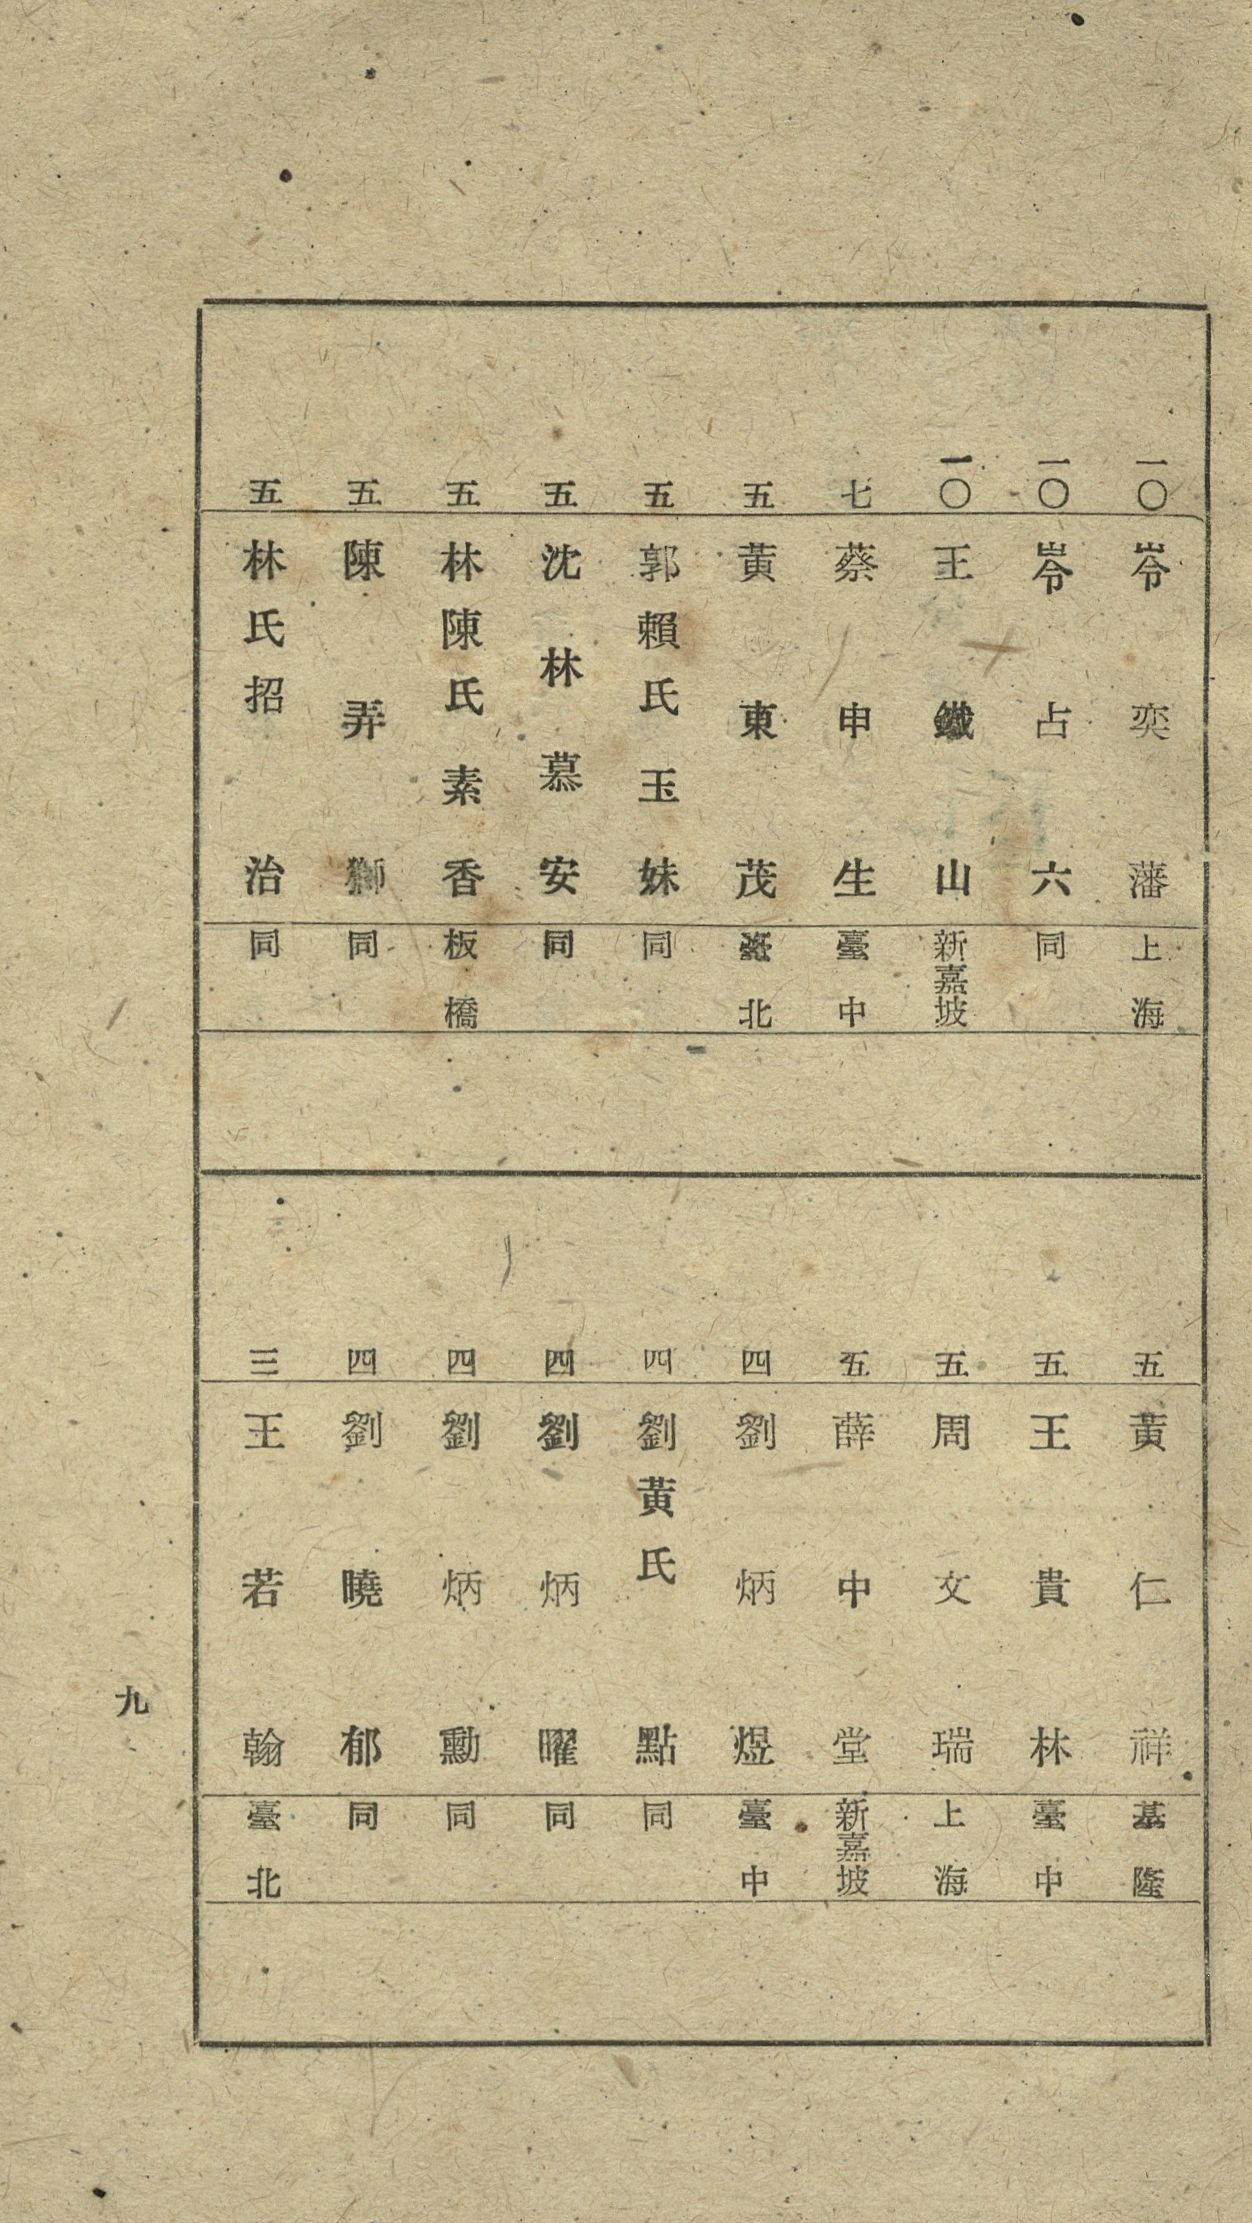 一〇 岺奕藩 上海
一〇 岺占六 同
一〇 王鐵山 新嘉坡
七 蔡申生 臺中
五 黃東茂 臺北
五 郭賴氏玉妹 同
五 沈林慕安 同
五 林陳氏素香 板橋
五 陳弄獅 同
五 林氏招治 同
五 黃仁祥 基隆
五 王貴林 臺中
五 周文瑞 上海
五 薛中堂 新嘉坡
四 劉炳煜 臺中
四 劉黃氏點 同
四 劉炳曜 同
四 劉炳勳 同
四 劉曉郁 同
三 王若翰 臺北
九